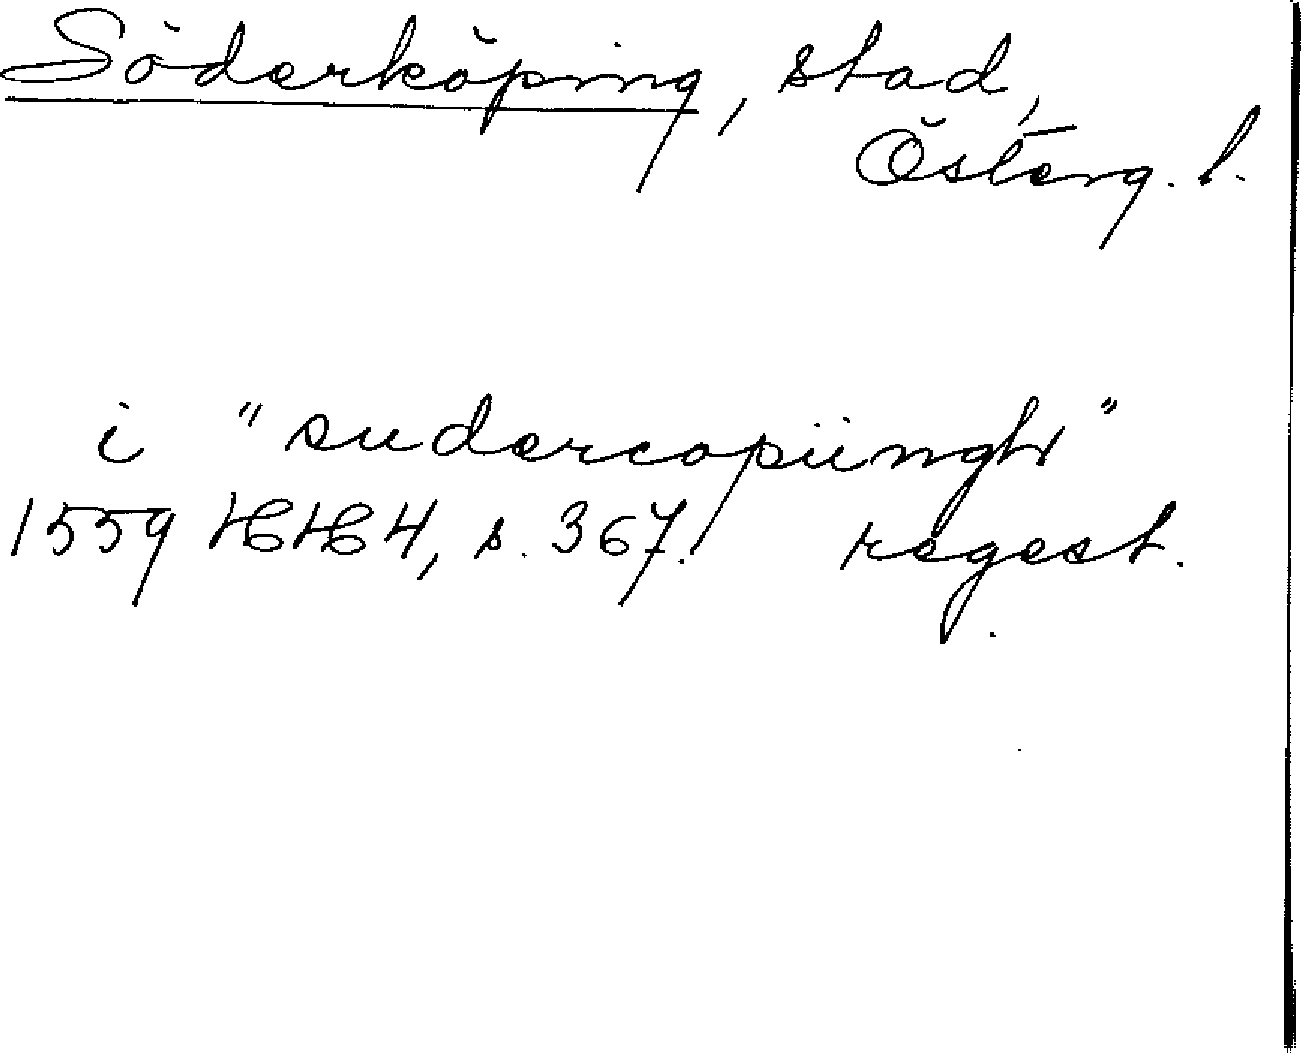 Söderköping, stad,
Österg. l.
i "sudercopiingh"
1559 HH 4, s. 367. regest.